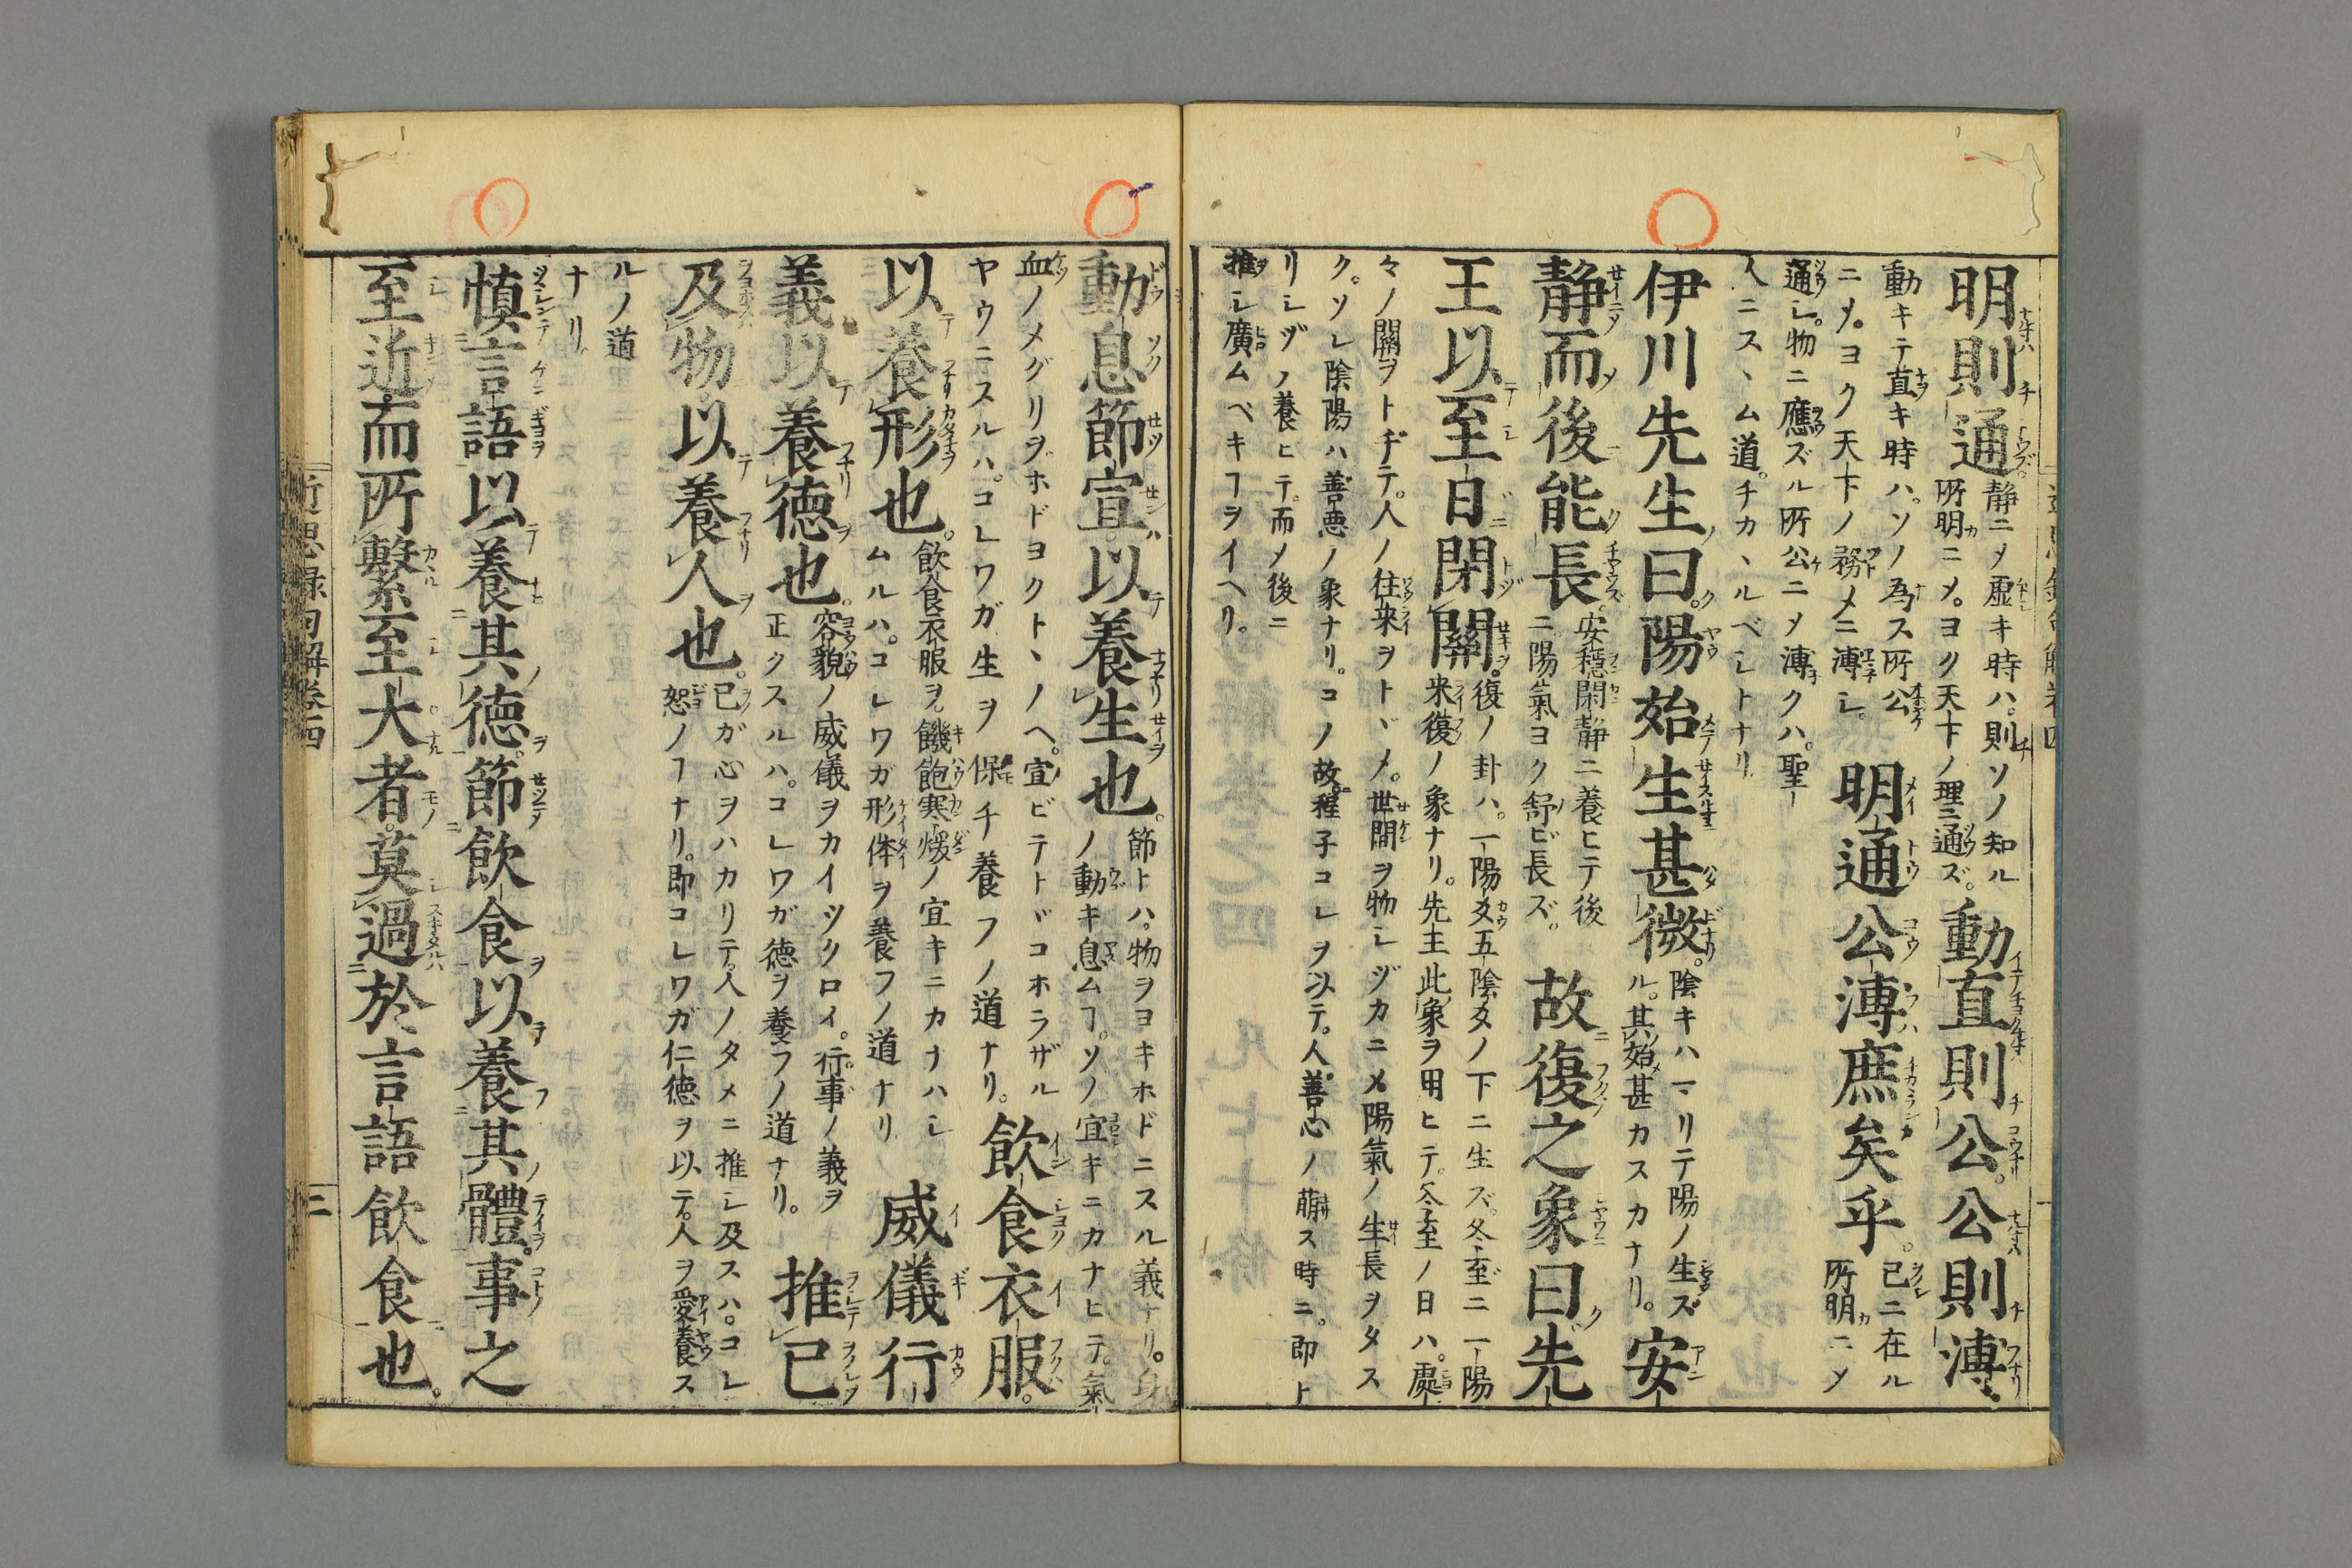 明則通。静ニメ虚キ時ハ。則ソノ知ル
所明ニメ。ヨク天下ノ理ニ通ズ。動直則公。公則溥。
動キテ直キ時ハ。ソノ為ス所公
ニメ。ヨク天下ノ務メニ溥シ。明通公溥庶矣乎。己ニ在ル
所明ニメ
通シ。物ニ應ズル所公ニメ溥クハ。聖
人ニスヽム道。チカヽルベシトナリ
伊川先生曰。陽始生甚微。陰キハマリテ陽ノ生ズ
ル。其始甚カスカナリ。安
静而後能長。安穏閑静ニ養ヒテ後
ニ陽氣ヨク舒ビ長ズ。故復之象曰先
王以至日閉關。復ノ卦ハ。一陽爻五陰爻ノ下ニ生ズ。冬至ニ一陽
来復ノ象ナリ。先主此象ヲ用ヒテ。冬至ノ日ハ。處
々ノ關ヲトヂテ。人ノ往来ヲトヾメ。世間ヲ物シヅカニメ陽氣ノ生長ヲタス
ク。ソレ陰陽ハ善悪ノ象ナリ。コノ故程子コレヲ以テ。人善心ノ萠ス時ニ。即ト
リシヅノ養ヒテ。而メ後ニ
推シ廣ムベキヿヲイヘリ。
動息節宣以養生也。節トハ。物ヲヨキホドニスル義ナリ。身
ノ動キ息ムヿ。ソノ宜キニカナヒテ。氣
血ノメグリヲホドヨクトヽノヘ。宣ビテトヾコホラザル
ヤウニスルハ。コレワガ生ヲ保チ養フノ道ナリ。飲食衣服。
以養形也。飲食衣服ヲ。饑飽寒煖ノ宜キニカナハシ
ムルハ。コレワガ形体ヲ養フノ道ナリ 威儀行
義以養徳也。容貌ノ威儀ヲカイツクロイ。行事ノ義ヲ
正クスルハ。コレワガ徳ヲ養フノ道ナリ。推己
及物。以養人也。己ガ心ヲハカリテ。人ノタメニ推シ及スハ。コレ
恕ノヿナリ。即コレワガ仁徳ヲ以テ。人ヲ愛養ス
ルノ道
ナリ。
慎言語以養其徳。節飲食以養其體。事之
至近而所繋至大者。莫過於言語飲食也。
近思録句解巻四
二